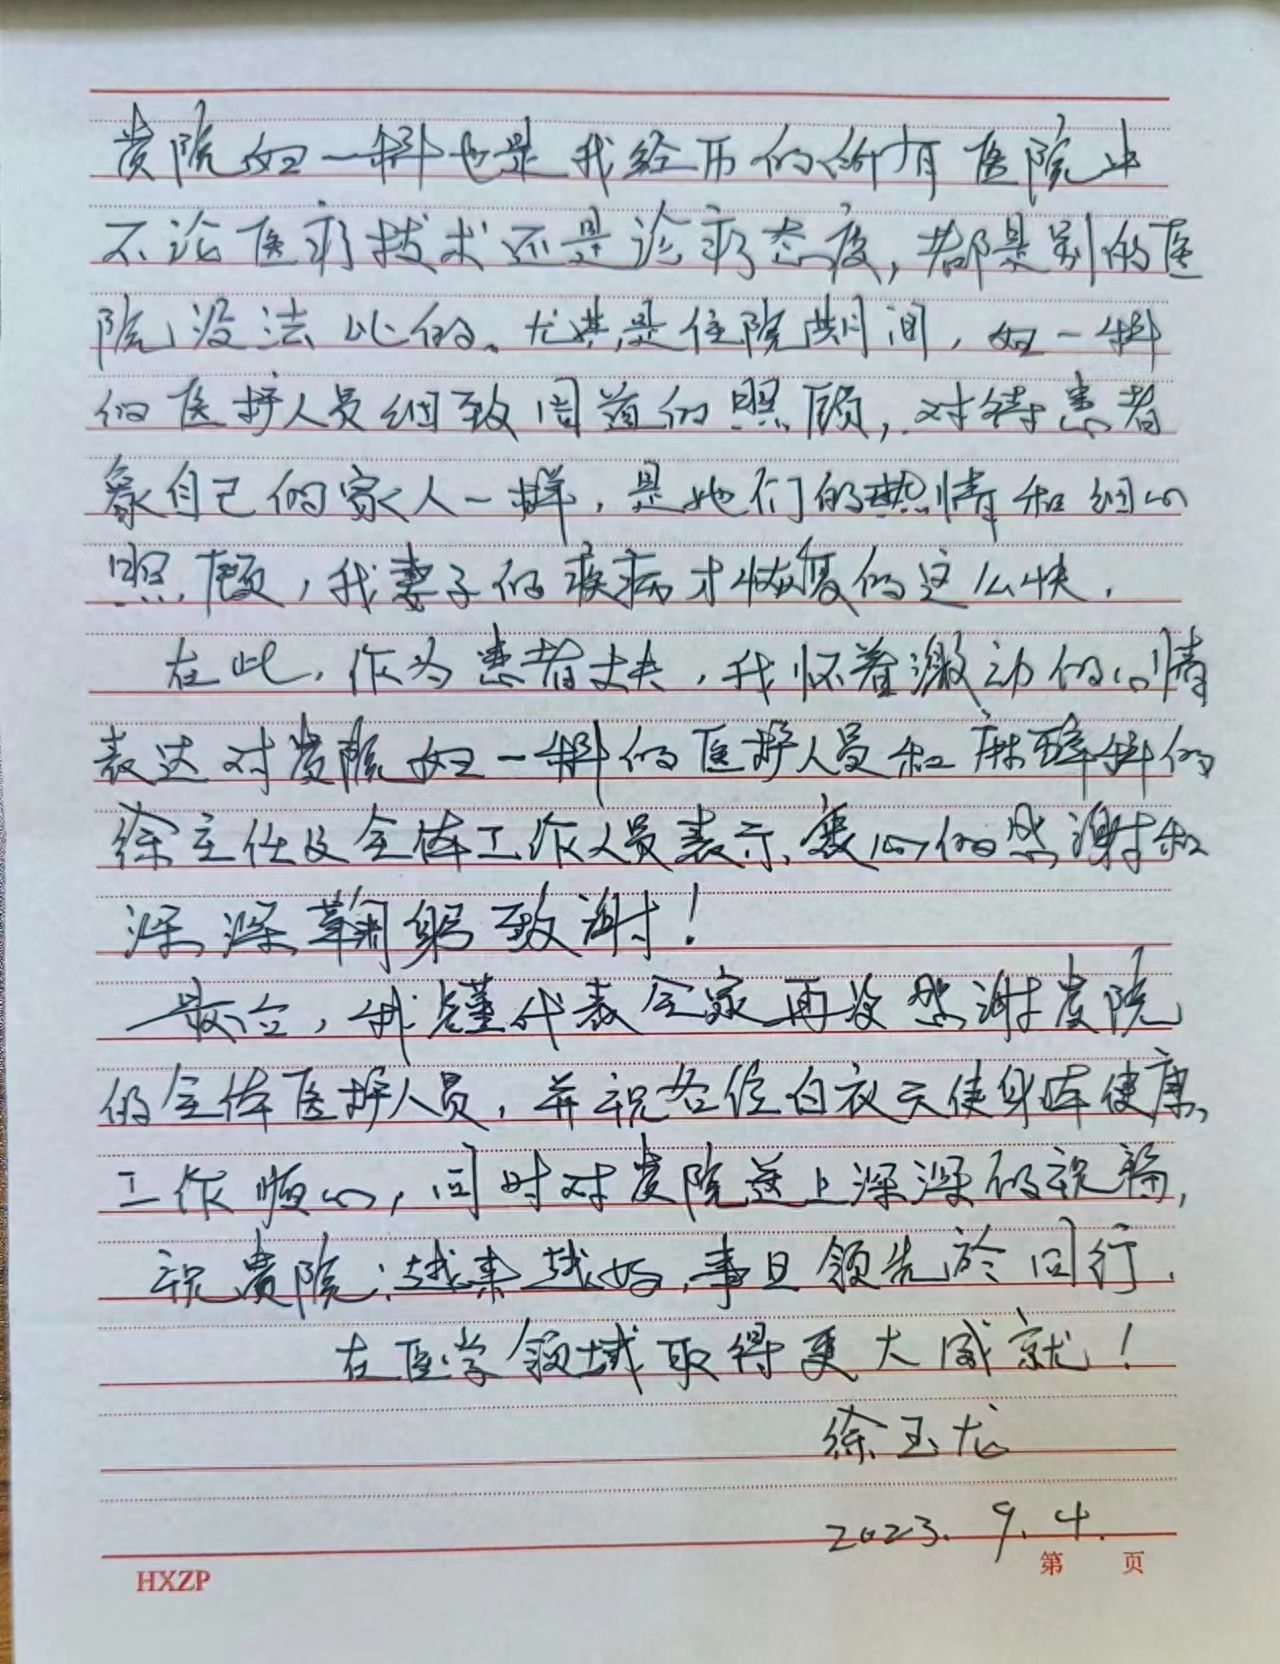 贵院妇一科也是我经历的所有医院中
不论医疗技术还是诊疗态度，都是别的医
院没法比的。尤其是住院期间，妇一科
的医护人员细致周道的照顾，对待患者
象自己的家人一样，是她们的热情和细心
照顾，我妻子的疾病才恢复的这么快．
在此，作为患者丈夫，我怀着激动的心情
表达对贵院妇一科的医护人员和麻醉科的
徐主任及全体工作人员表示、衷心的感谢和
深深鞠躬致谢！
最后，我谨代表全家再次感谢贵院
的全体医护人员，并祝各位白衣天使身体健康、
工作顺心，同时对贵院送上深深的祝福，
祝贵院：越来越好，事且领先於同行．
在医学领域取得更大成就！
徐玉龙
2023.9.4.
HXZP 第 页